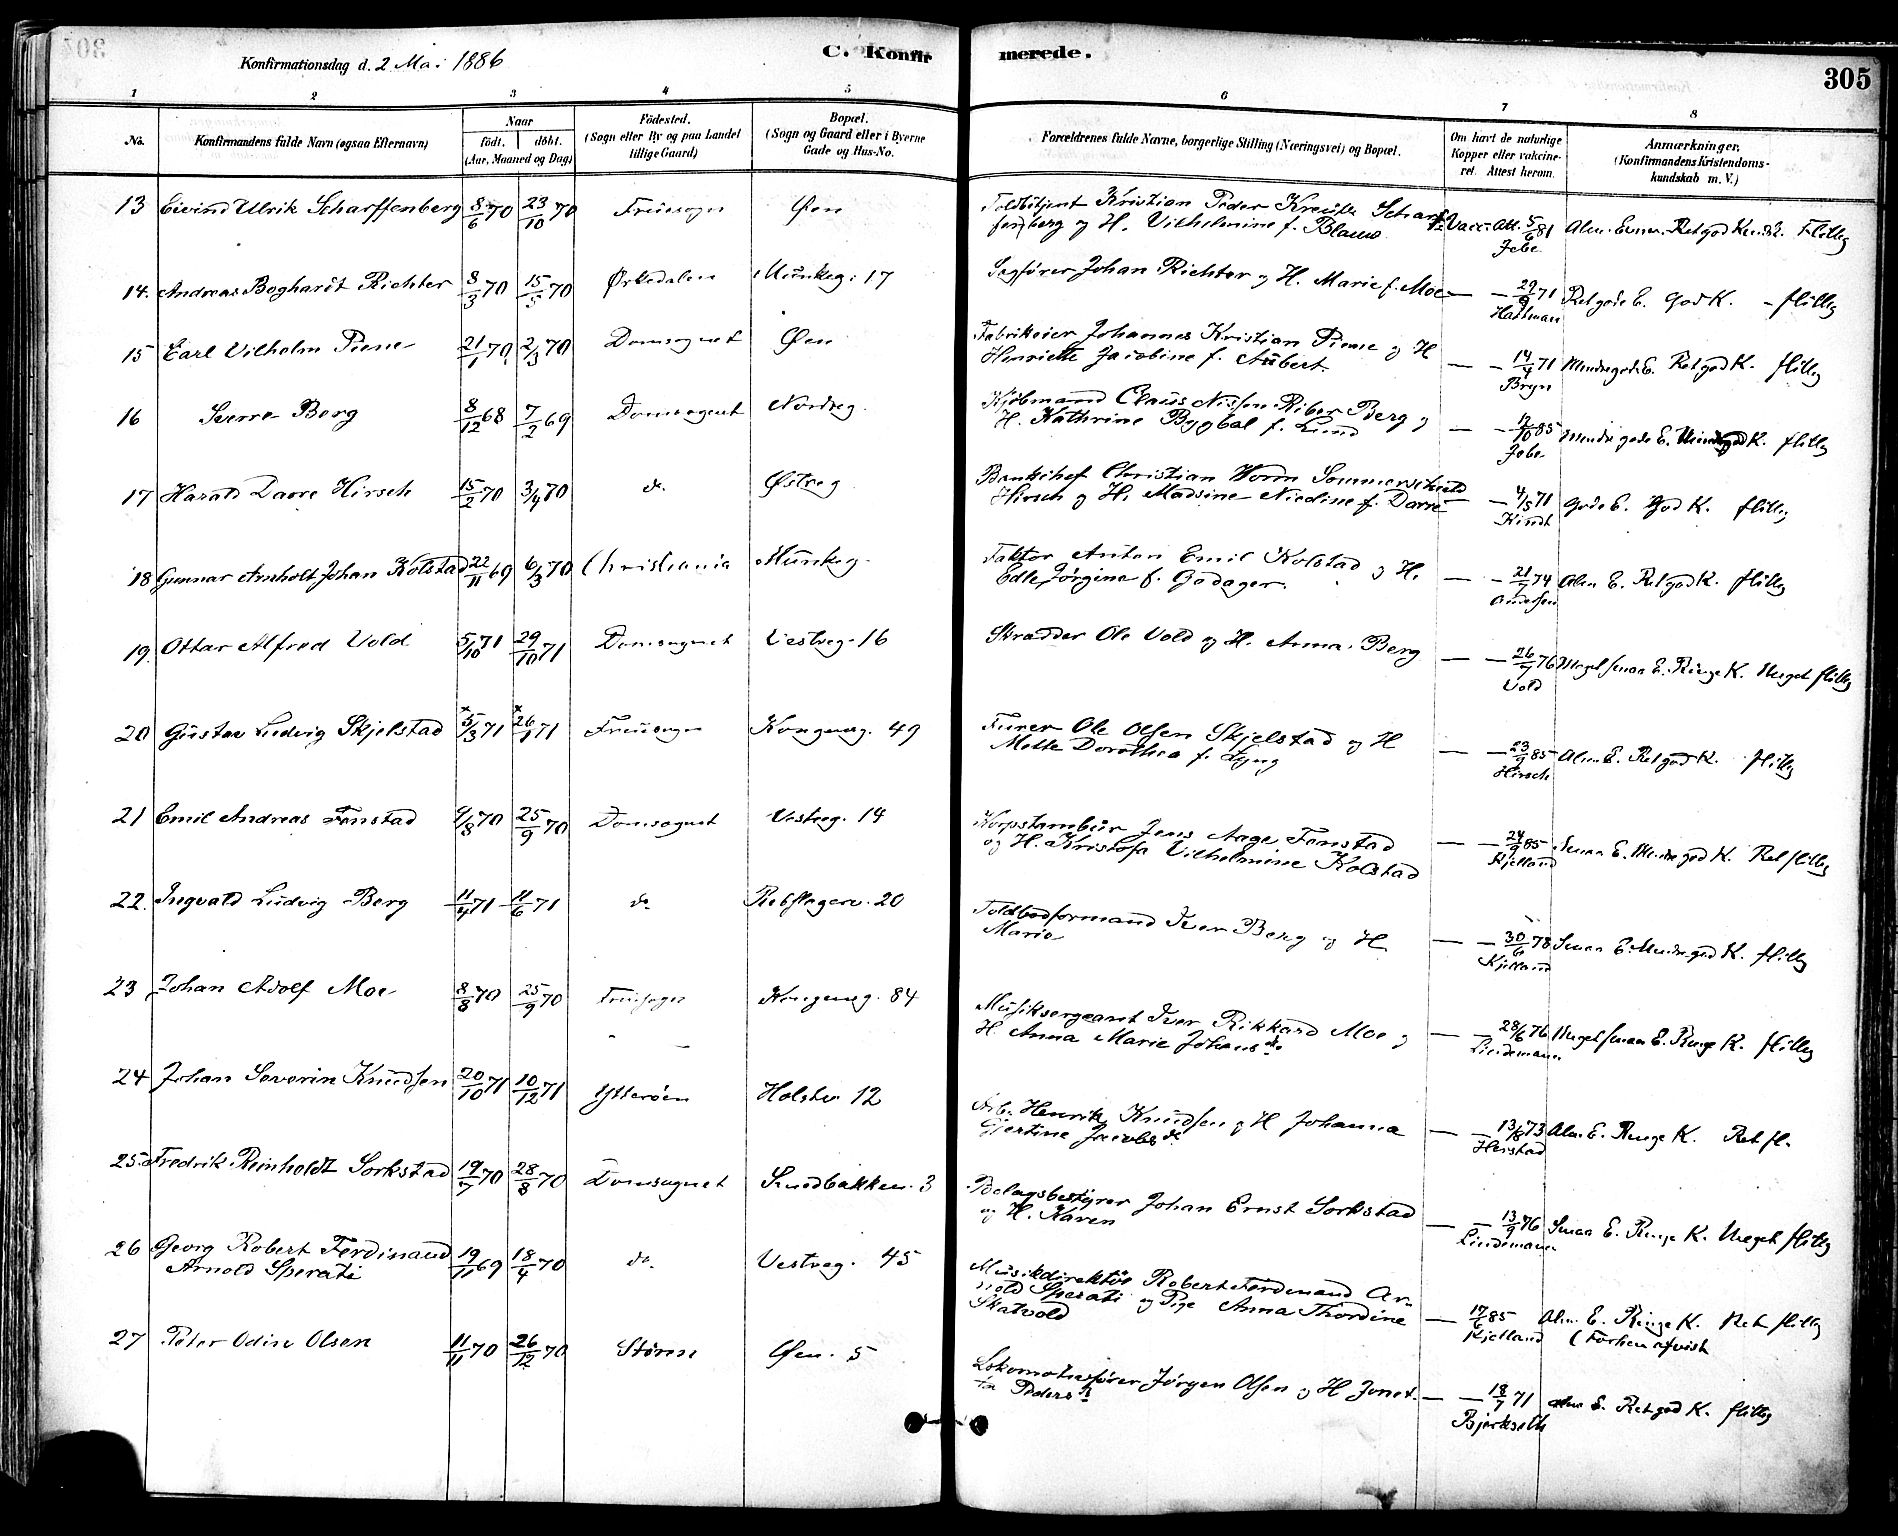 Konfirmationsdag d. 2 Mai 1886
C. Konfirmerede.
305
1 2 3 4 5 6 7 8
No. Konfirmandens fulde Navn (ogsaa Efternavn) Naar födt. döbt. (Aar, Maaned og Dag) Födested. (Sogn eller By og paa Landet tillige Gaard) Bopæl. (Sogn og Gaard eller i Byerne Gade og Hus-No. Forældrenes fulde Navne, borgerlige Stilling (Næringsvei) og Bopæl. Om havt de naturlige Kopper eller vaccineret. Attest herom. Anmærkninger. (Konfirmandens Kristendomskundskab m. V.)
13 Eivind Ulrik Scharffenberg 8/6 70 23/10 70 Fruesogn Øen Toldbetjent Kristian Peder Scharffenberg og H. Vilhelmine f. Vacc. Att. 5/6 81 Jebe Alm. Evner. Ret god Kundsk. Flittig
14. Andreas Boghardt Richter 8/3 70 15/5 70 Ørkedalen Munkeg. 17 Sagfører Johan Richter og H. Marie f. Moe — — 29/9 71 Hartman Ret gode E. God K. - flittig
15 Earl Vilhelm Piene 21/1 70 2/3 70 Domsognet Øen Fabrikeier Johannes Kristian Piene og H Henriette Jacobine f. Aubert. — — 14/4 71 Bryn Mindre gode E. Ret god K. flittig
16 Sverre Berg 8/12 68 7/2 69 Domsognet Nordreg. Kjøbmand Claus Nissen Riber Berg og H. Kathrine Bygbal f. Lund — — 12/10 85 Jebe Mindre gode E. Mindregod K. flittig
17 Harald Darre Hirsch 15/2 70 3/4 70 do. Østreg Bankchef Christian Worm Sommerschield Hirsch og H. Madsine Nicoline f. Darre — — 4/5 71 Kindt Gode E. God K. flittig
18 Gunnar Arnholt Johan Kolstad 22/11 69 6/3 70 Christiania Munkeg. Faktor Anton Emil Kolstad og H. Edle Jørgine f. Godager. — — 21/7 74 Andersen Alm E. Ret god K. flittig
19. Ottar Alfred Vold 5/10 71 29/10 71 Domsognet Vestreg. 16 Skrædder Ole Vold og H. Anna Berg — — 26/7 76 Vold Meget smaa E. Ringe K. Meget flittig
20 Gustav Ludvig Skjelstad 5/3 71 26/ 71 Fruesogn Kongensg. 49 Furer Ole Olsen Skjelstad og H Mette Dorothea f. Lyng — — 23/9 85 Hirsch Alm E. Ret god K. flittig
21 Emil Andreas Fonstad 9/8 70 25/9 70 Domsognet Vestreg. 14 Korpstambur Jens Aage Fonstad og H. Kristofa Vilhelmine Kolstad — — 24/9 85 Kjelland Smaa E. Mindre god K. Ret flittig
22. Ingvald Ludvig Berg 11/4 71 11/6 71 do. Rebslagerv. 20 Toldbodformand Iver Berg og H Marie — — 30/6 78 Kjelland Smaa E. Mindre god K. flittig
23 Johan Adolf Moe 8/8 70 25/9 70 Fruesogn Kongensg. 84 Musiksergeant Iver Rikkard Moe og H. Anna Marie Johansdr. — — 28/6 76 Lindemann Meget smaa E. Ringe K. flittig
24 Johan Severin Knudsen 20/10 71 10/12 71 Ytterøen Holstv. 12 Arb. Henrik Knudsen og H Johanna Gjertine Jacobsdr. — — 13/8 73 Herstad Alm. E. Ringe K. Ret fl.
25. Fredrik Reinholdt Sorkstad 19/7 70 28/8 70 Domsognet Smedbakken. 3 Bolagsbestyrer Johan Ernst Sorkstad og H. Karen — — 13/9 76 Lindemann Smaa E. Ringe K. Meget flittig
26 Georg Robert Ferdinand Arnold Sperati 19/11 69 18/4 70 do. Vestreg. 45 Musikdirektör Robert Ferdinand Arnold Sperati og Pige Anna Thordine Skatvold — 17/6 85 Kjelland Alm. E. Ringe K. Ret flittig (Forhen afvist
27 Peter Odin Olsen 11/11 70 26/12 70 Støren Øen. 5 Lokomotivfører Jørgen Olsen og H Jonetta Pedersdr — — 18/7 71 Bjerkseth Alm E. Ret god K. flittig